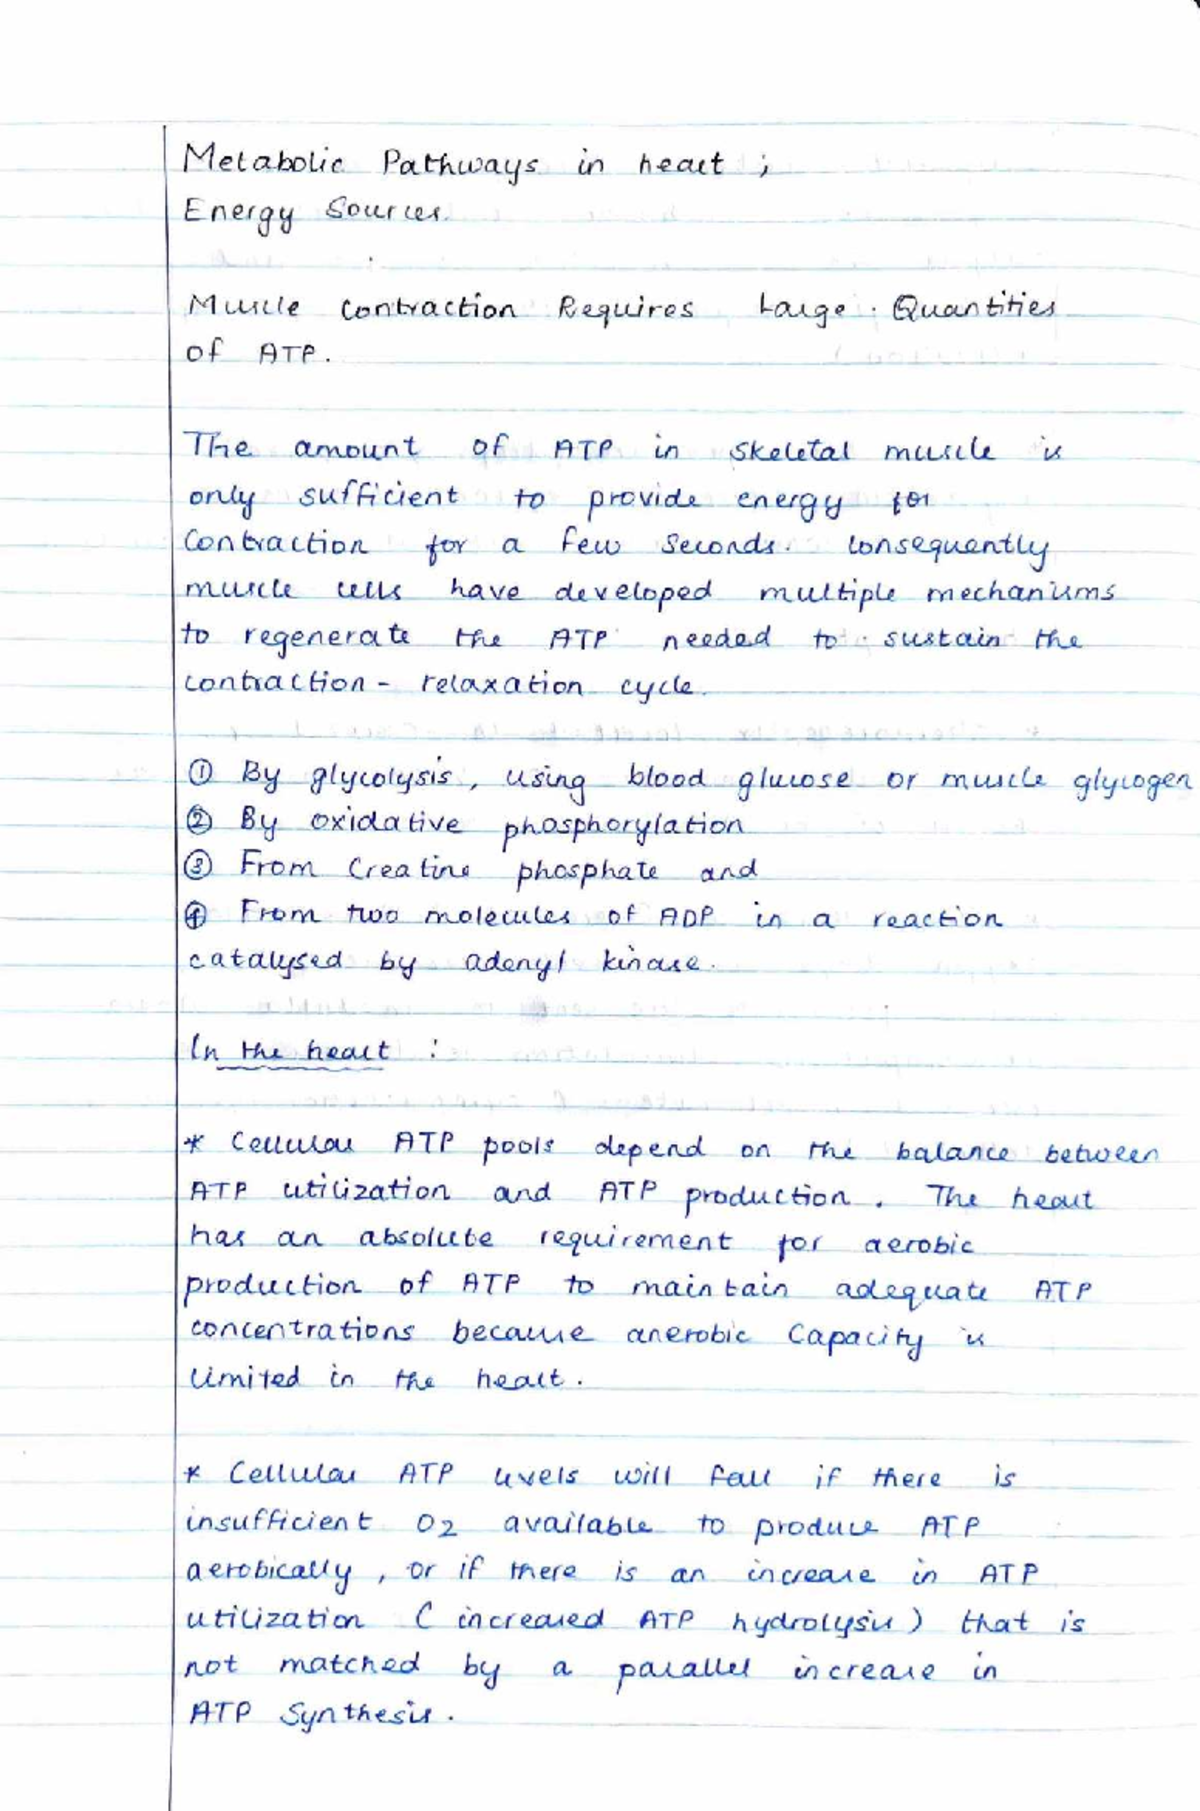 Metabolic Pathways in heart ;
Energy Sources.
Muscle Contraction Requires Large Quantities
of ATP.
The amount of ATP in skeletal muscle is
only sufficient to provide energy for
Contraction for a few seconds. Consequently
muscle cells have developed multiple mechanisms
to regenerate the ATP needed to sustain the
contraction - relaxation cycle.
① By glycolysis, using blood glucose or muscle glycogen
② By oxidative phosphorylation
③ From Creatine phosphate and
④ From two molecules of ADP in a reaction
catalysed by adenyl kinase.
In the heart :
* Cellular ATP pools depend on the balance between
ATP utilization and ATP production. The heart
has an absolute requirement for aerobic
production of ATP to maintain adequate ATP
concentrations because anerobic Capacity is
limited in the heart.
* Cellular ATP levels will fall if there is
insufficient O2 available to produce ATP
aerobically, or if there is an increase in ATP
utilization ( increased ATP hydrolysis ) that is
not matched by a parallel increase in
ATP Synthesis.